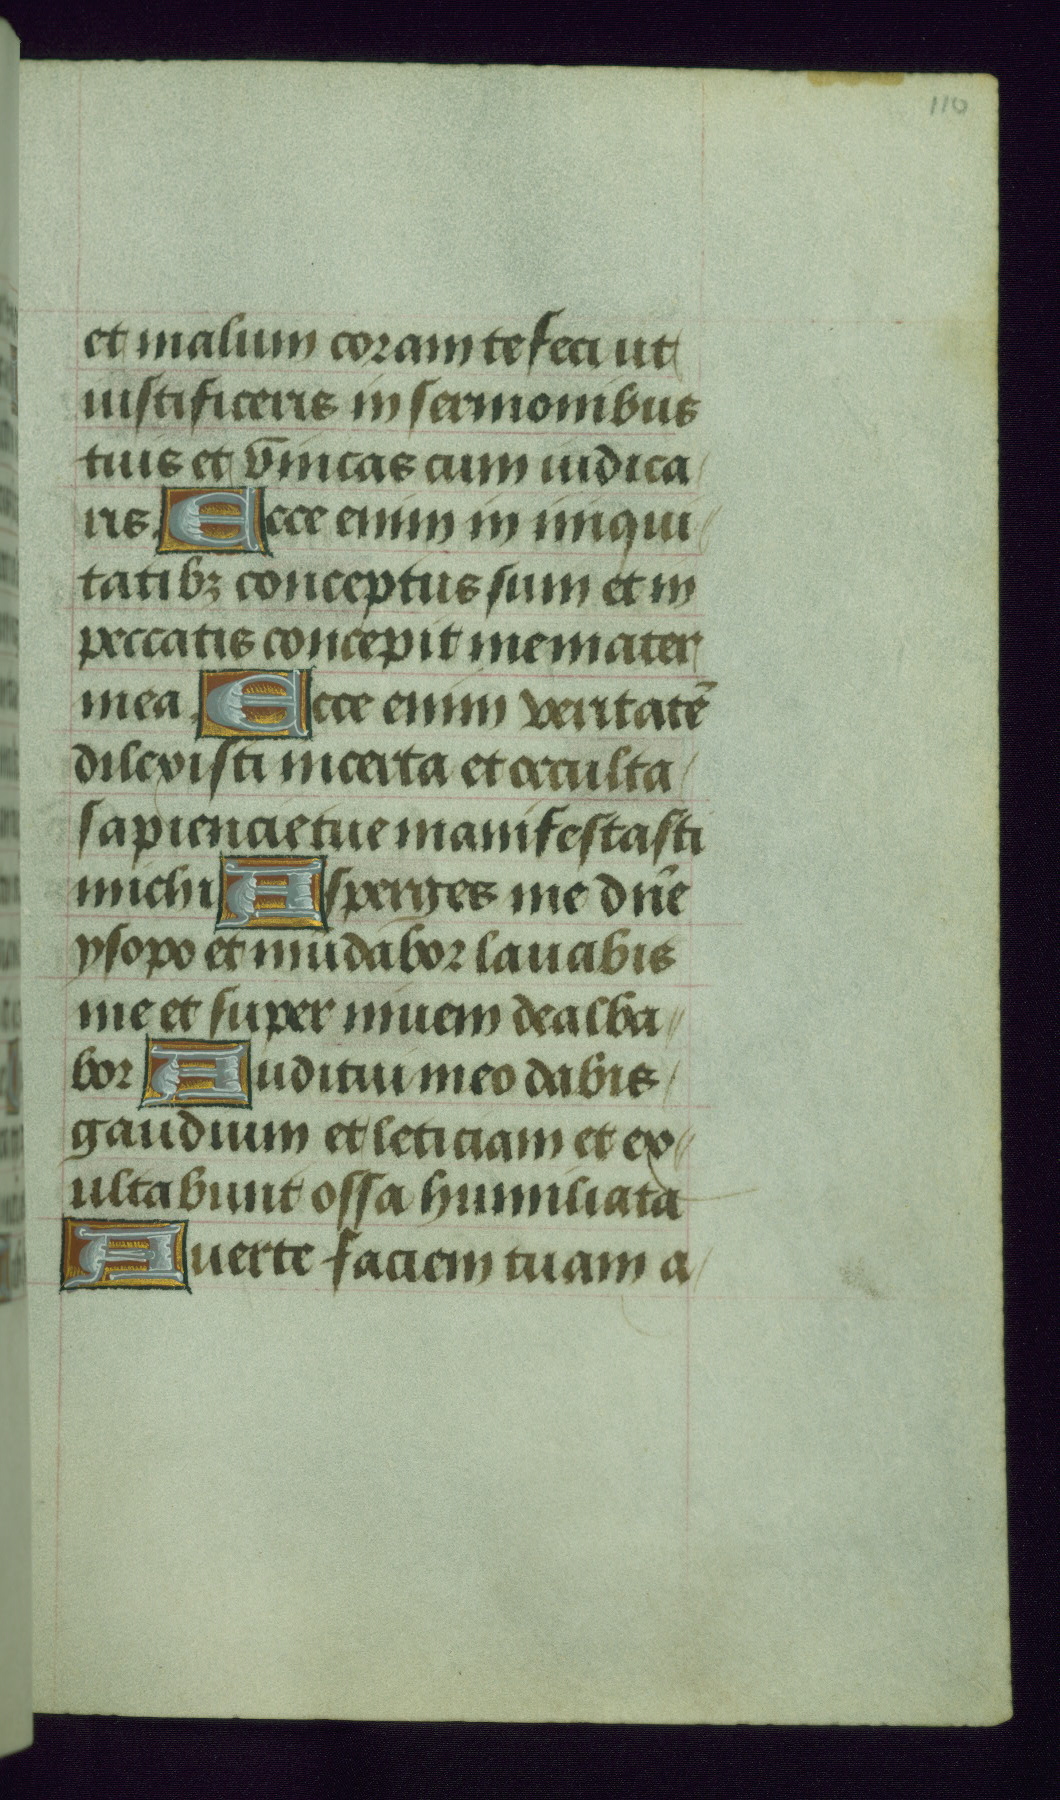 110
et malum coram te feci ut
iustificeris in sermonibus
tuis et v̄incas cum iudica
ris. Ecce enim in iniqui
tatibꝫ conceptus sum et in
peccatis concepit me mater
mea. Ecce enim veritatē
dilexisti incerta et occulta
sapiencie tue manifestasti
michi Asperges me dn̄e
ysopo et mūdabor lauabis
me et super niuem dealba
bor Auditui meo dabis
gaudium et leticiam et ex
ultabunt ossa humiliata
Auerte faciem tuam a